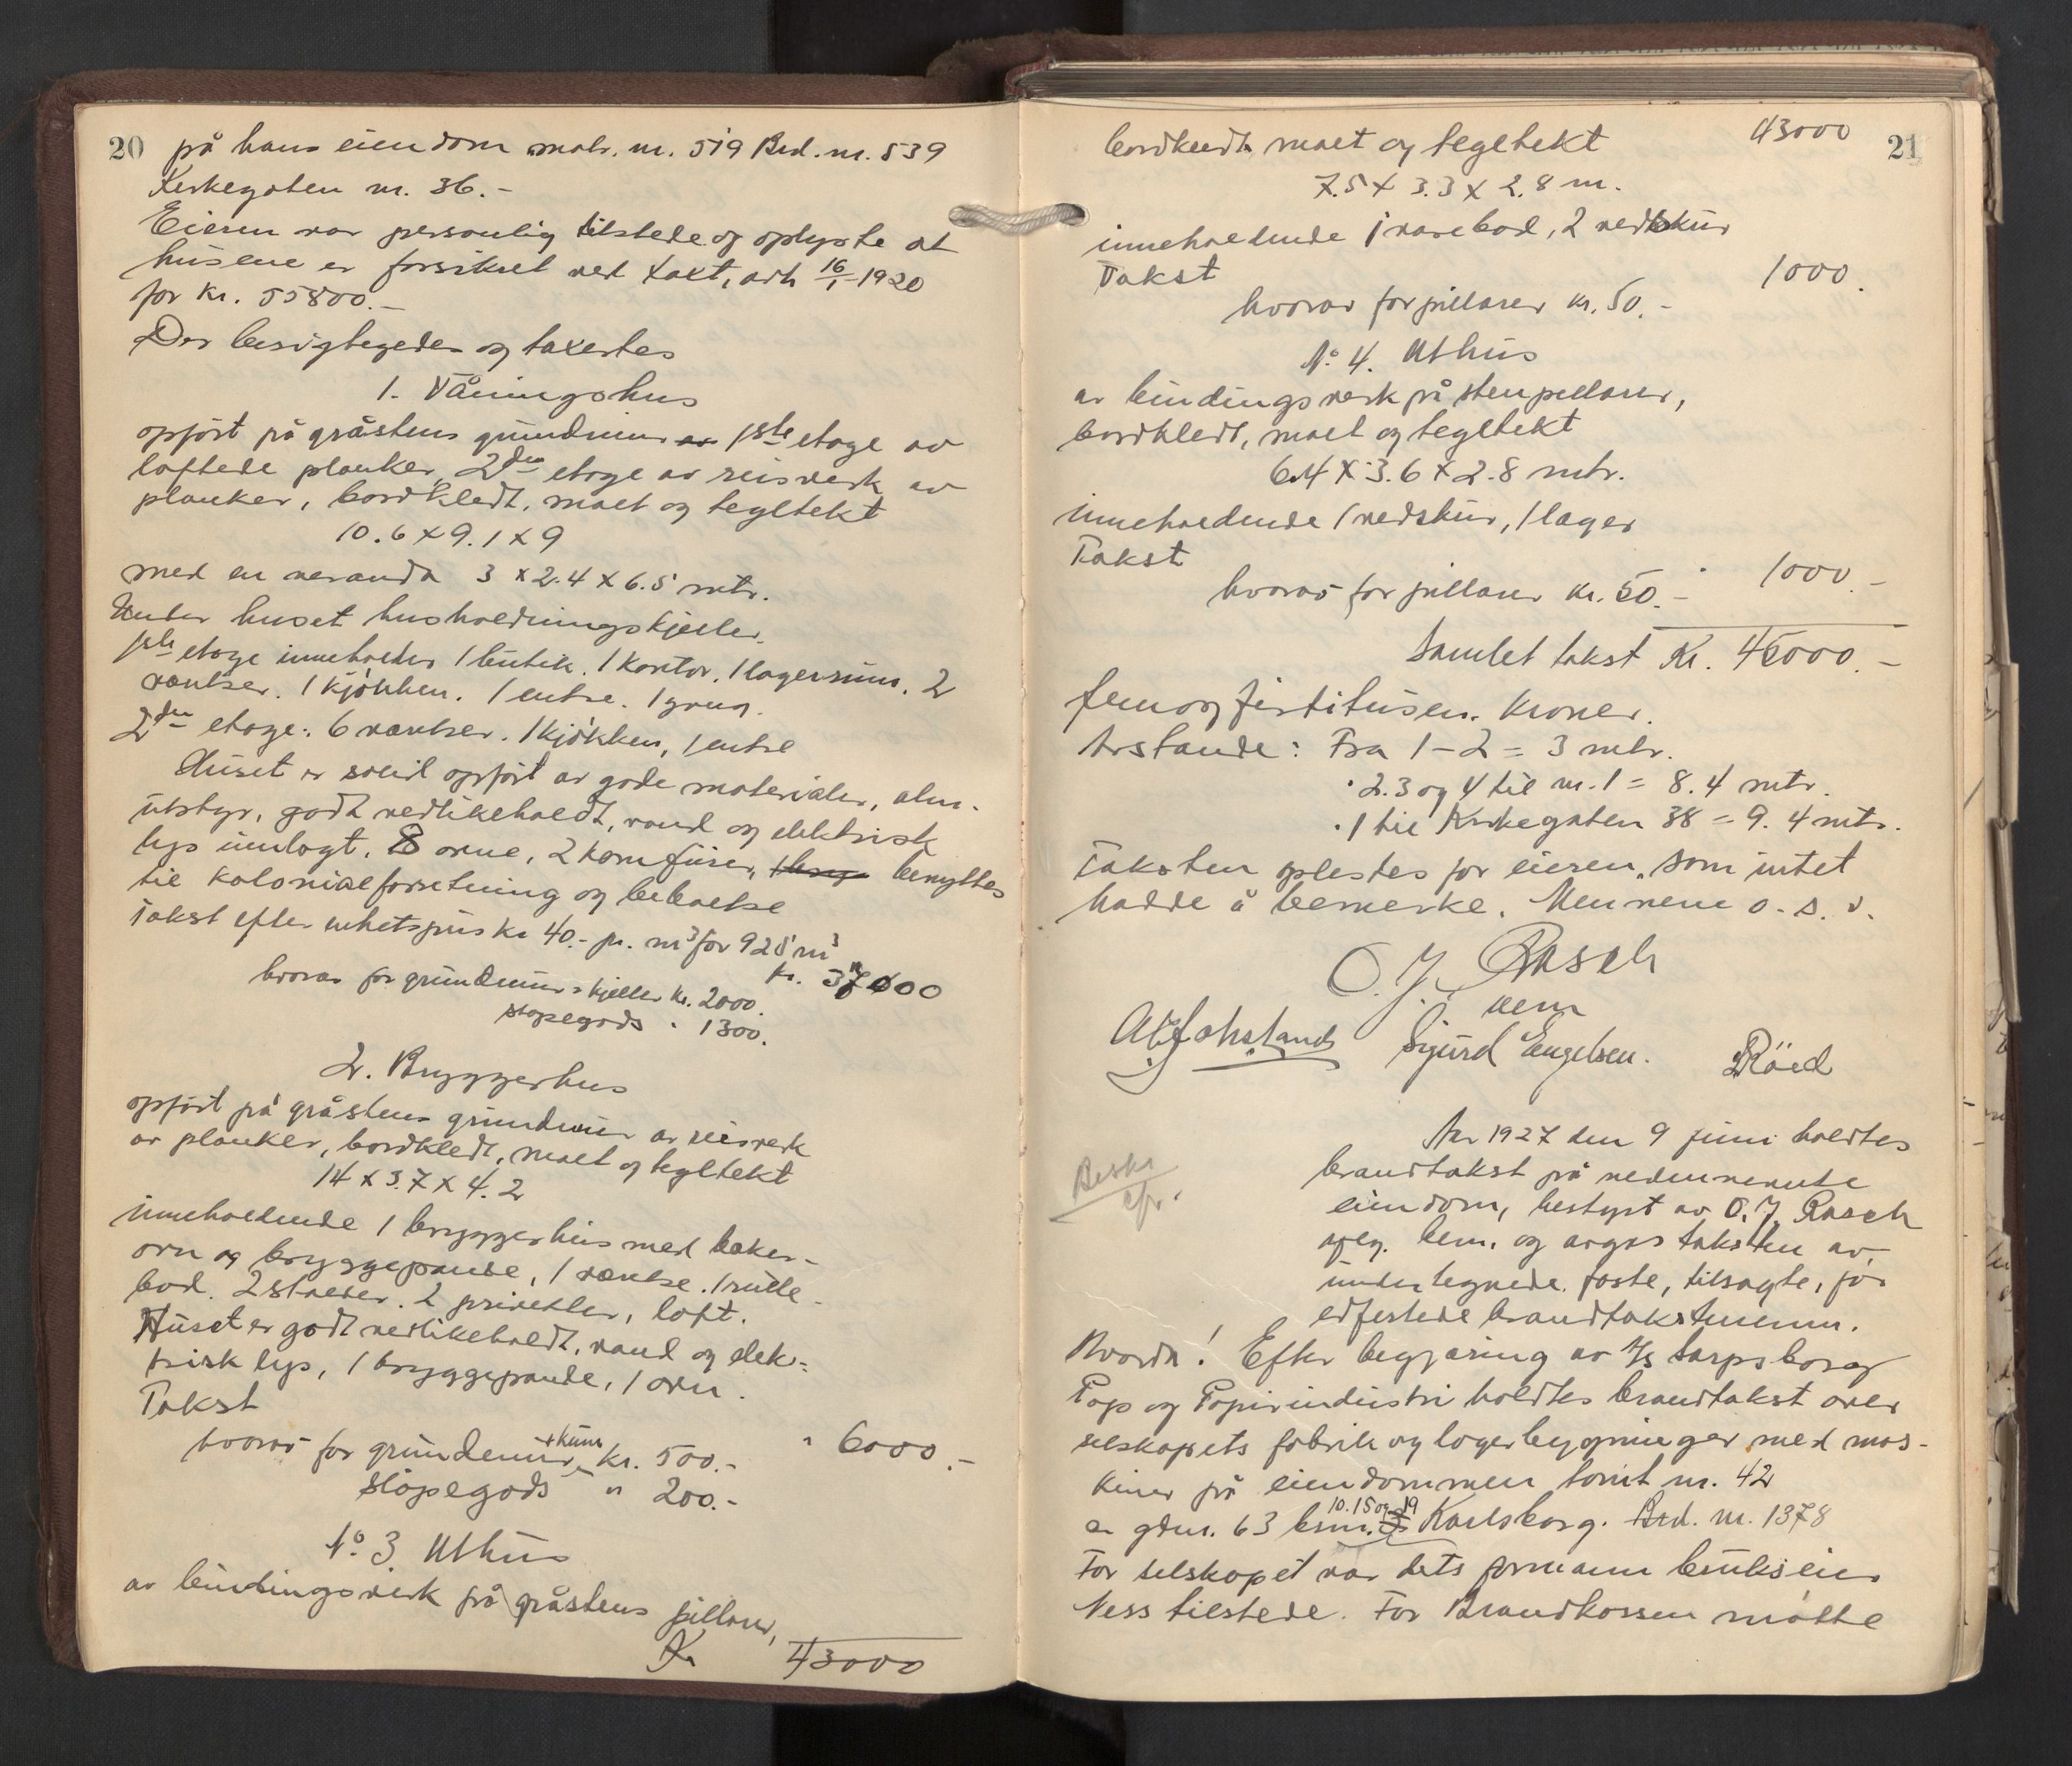 20 på hans eiendom matr. nr. 519 Brd. nr. 539
Kirkegaten nr. 36.-
Eieren var personlig tilstede og oplyste at
husene er forsikret ved taxt, avh 16/1-1920
for Kr. 55800.-
Der besigtigedes og taxertes
1. Våningshus
opført på gråstens grundmur av 1ste etage av
laftede planker, 2den etage av reisverk av
planker, bordkledt, malt og tegltekt
10.6 x 9.1 x 9
med en veranda 3 x 2.4 x 6.5 mtr.
Under huset husholdningskjeller.
1ste etage inneholder 1 butik. 1 kontor. 1 lagerrum. 2
værelser. 1 kjøkken. 1 entre. 1 gang.
2den etage: 6 værelser. 1 kjøkken, 1 entre
Huset er solid opført av gode materialer, alm.
utstyr, godt vedlikeholdt, vand og elektrisk
lys innlagt. 8 ovne, 2 komfurer, benyttes
til kolonialforretning og beboelse
Takst efter enhetspris kr 40.- pr. m³ for 925 m³
kr. 37000
hvorav for grundmur + kjeller kr. 2000.
støpegods " 1300.
2. Bryggerhus
opført på gråstens grundmur av reisverk
av planker, bordkledt, malt og tegltekt
14 x 3.7 x 4.2
inneholdende 1 bryggerhus med baker-
ovn og bryggepande, 1 værelse. 1 rulle-
bod. 2 stalder. 2 priveter, loft.
Huset er godt vedlikeholdt, vand og elek-
trisk lys, 1 bryggepande, 1 ovn.
Takst " 6000.-
hvorav for grundmur kr. 500.-
støpegods " 200.-
No. 3 Uthus
av bindingsverk på gråstens pillarer,
Kr 43000
bordkledt, malt og tegltekt 43000 21
7.5 x 3.3 x 2.8 m.
inneholdende 1 varebod, 2 vedskur
Takst 1000.
hvorav for pillarer kr. 50.-
No. 4. Uthus
av bindingsverk på stenpillarer,
bordkledt, malt og tegltekt
6.4 x 3.6 x 2.8 mtr.
inneholdende 1 vedskur, 1 lager
Takst 1000.-
hvorav for pillarer kr. 50.-
Samlet takst Kr. 45000.-
femogfirtitusen kroner.
Avstande: Fra 1-2 = 3 mtr.
" 2.3 og 4 til nr. 1 = 8.4 mtr.
" 1 til Kirkegaten 38 = 9.4 mtr.
Taksten oplestes for eieren, som intet
hadde å bemerke. Mennene o.s.v.
O. J. Rasch
lem
Sigurd Engelsen. Röed
År 1927 den 9 juni holdtes
brandtakst på nedennevnte
eiendom, bestyrt av O. J. Rasch
opg. lem. og avgis taksten av
undertegnede faste, tilsagte, før
edfestede brandtakstmenn.
Hvorda! Efter begjæring av A/S Sarpsborg
Pap og Papirindustri holdtes brandtakst over
selskapets fabrik og lagerbygninger med mas-
kiner på eiendommen tomt nr. 42
10.15 og 19
av gdnr. 63 bsnr. Karlsborg. Brd. nr. 1378
For selskapet var dets formann brukseier
Ness tilstede. For Brandkassen møtte